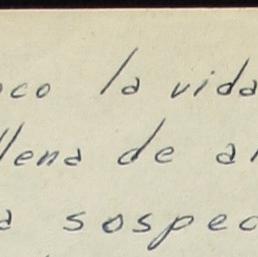 oco la vida
llena de a
a sospec